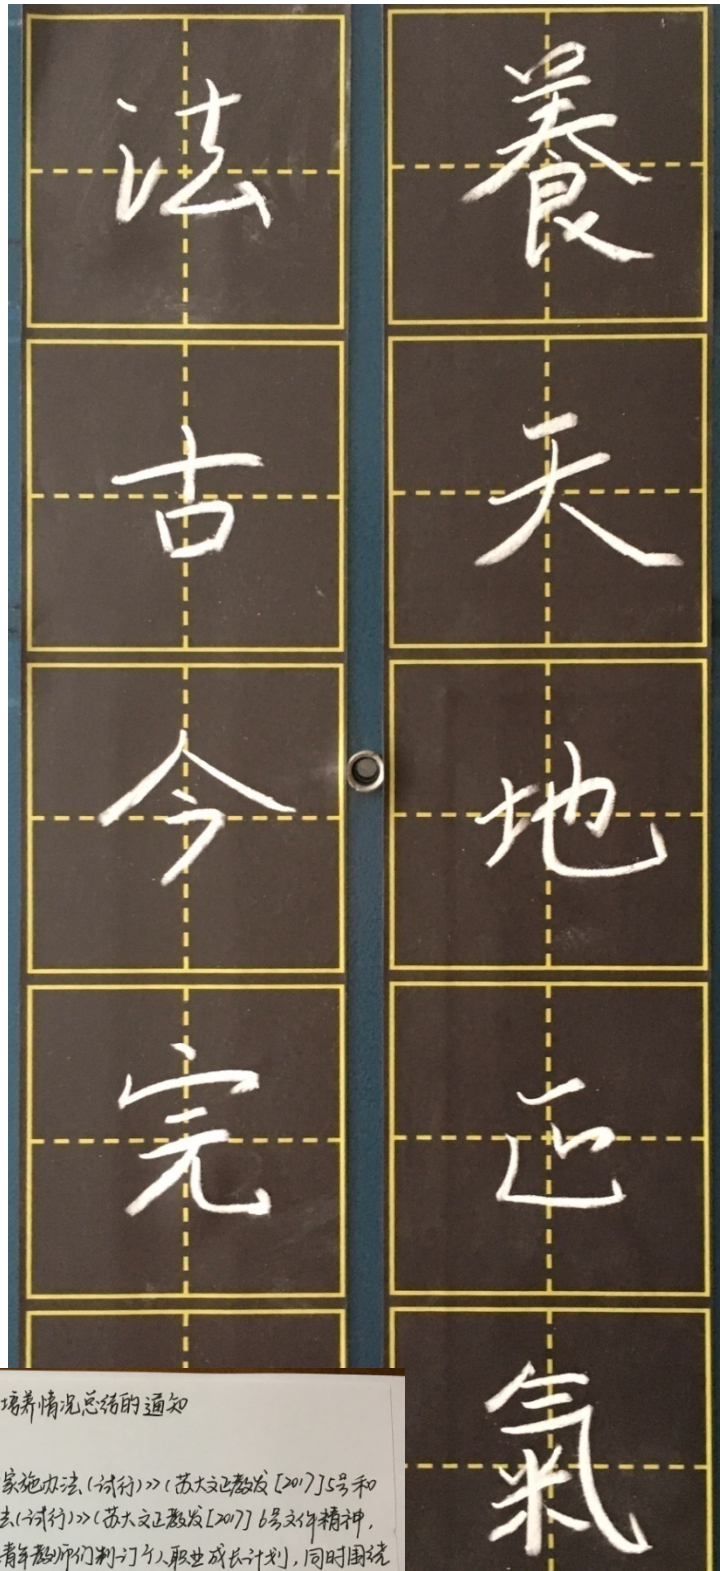 養天地正氣
法古今完
培养情况总结的通知
实施办法(试行)>>(苏大文正教发[2017]5号和
法(试行)>>(苏大文正教发[2017]6号文件精神,
青年教师们制订个人职业成长计划,同时围绕